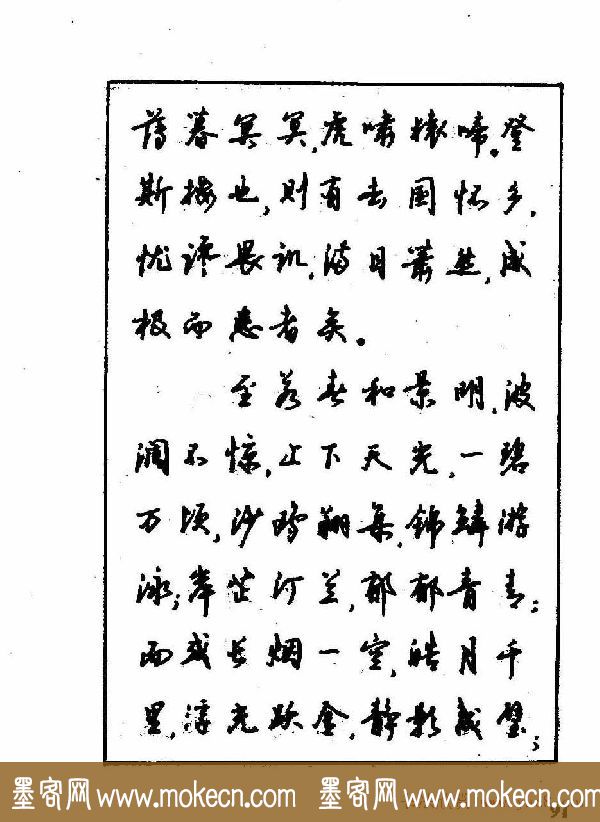 薄暮冥冥,虎啸猿啼。登
斯楼也,则有去国怀乡,
忧谗畏讥,满目萧然,感
极而悲者矣。
至若春和景明,波
澜不惊,上下天光,一碧
万顷,沙鸥翔集,锦鳞游
泳;岸芷汀兰,郁郁青青;
而或长烟一空,皓月千
里,浮光跃金,静影沉璧;
墨客网 www.mokecn.com 墨客网 www.mokecn.com
91